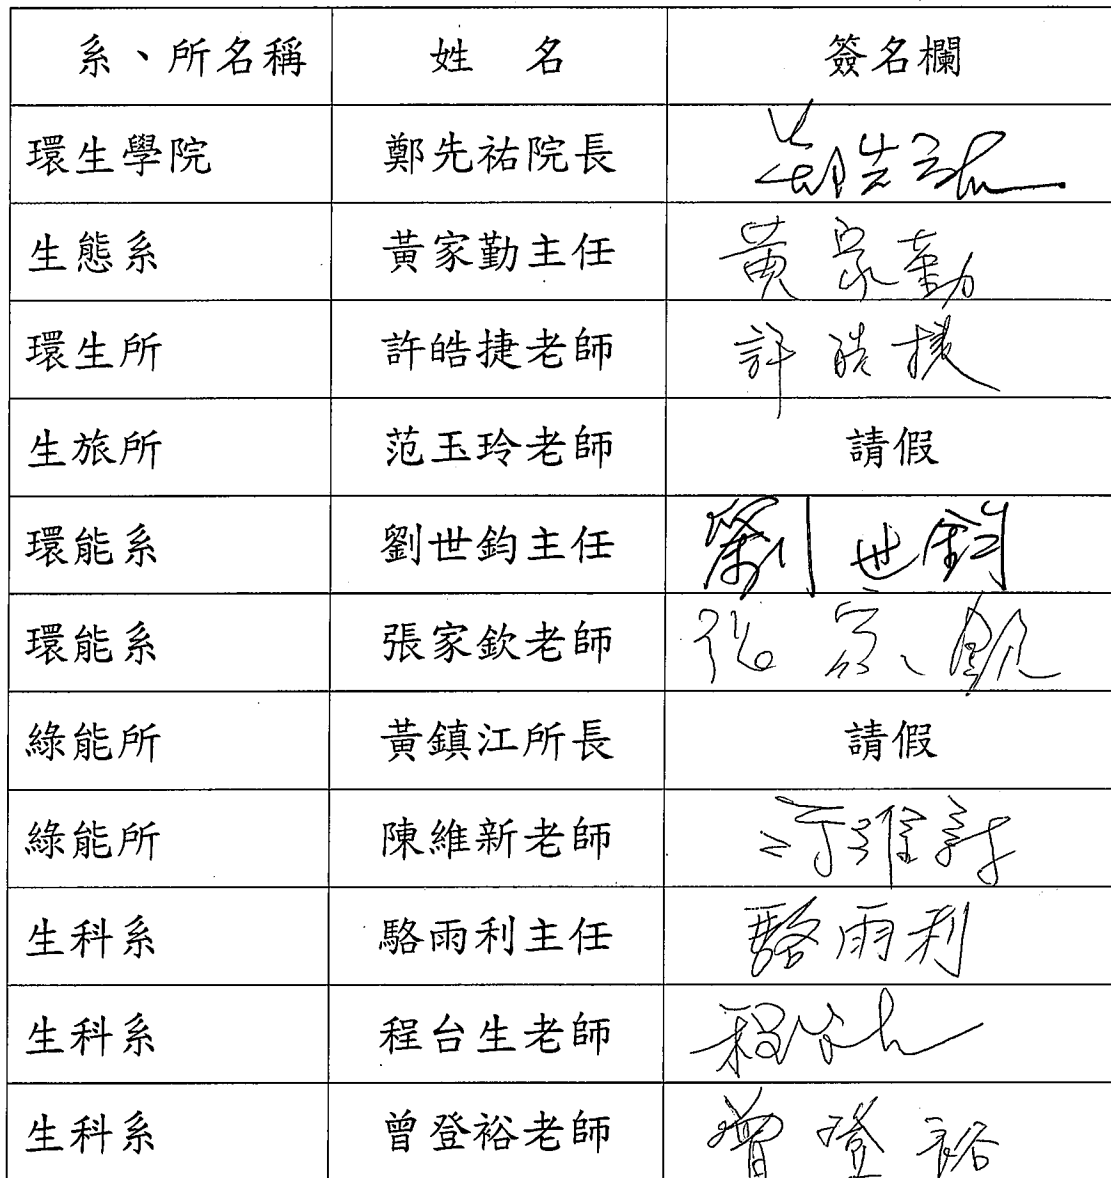 系、所名稱 姓 名 簽名欄
環生學院 鄭先祐院長 鄭先祐
生態系 黃家勤主任 黃家勤
環生所 許皓捷老師 許皓捷
生旅所 范玉玲老師 請假
環能系 劉世鈞主任 劉世鈞
環能系 張家欽老師 張家欽
綠能所 黃鎮江所長 請假
綠能所 陳維新老師 陳維新
生科系 駱雨利主任 駱雨利
生科系 程台生老師 程台生
生科系 曾登裕老師 曾登裕